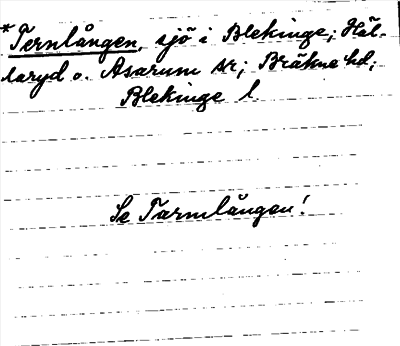 *Ternlången, sjö i Blekinge; Häl-
laryd o. Asarum sr; Bräkne hd;
Blekinge l.
Se Tarmlången!